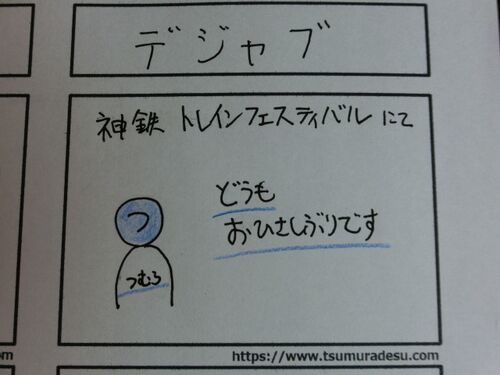 デジャブ
神鉄 トレインフェスティバル にて
どうも
おひさしぶりです
つ
つむら
https://www.tsumuradesu.com